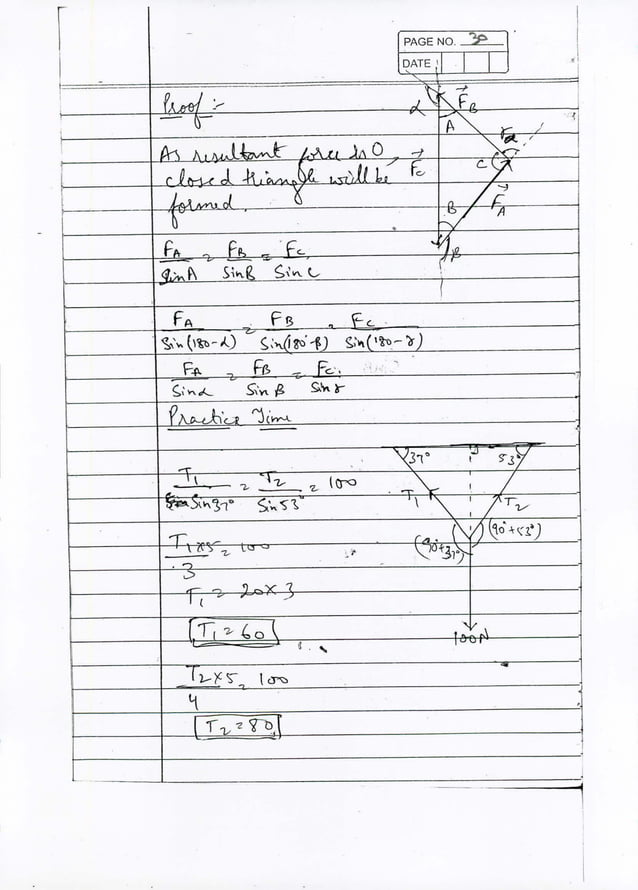 PAGE NO. 30
DATE
Proof :-
α A F⃗B
As resultant force is 0,
closed triangle will be
formed.
F⃗C
C
B
F⃗A
β
FA/SinA = FB/SinB = FC/SinC
FA/Sin(180-α) = FB/Sin(180°-β) = FC/Sin(180-γ)
FA/Sinα = FB/Sinβ = FC/Sinγ
Practice Time
37° 53°
T1/Sin37° = T2/Sin53° = 100
T1 T2
(90°+37°) (90°+53°)
T1×5/3 = 100
T1 = 20×3
T1 = 60
100N
T2×5/4 = 100
T2 = 80